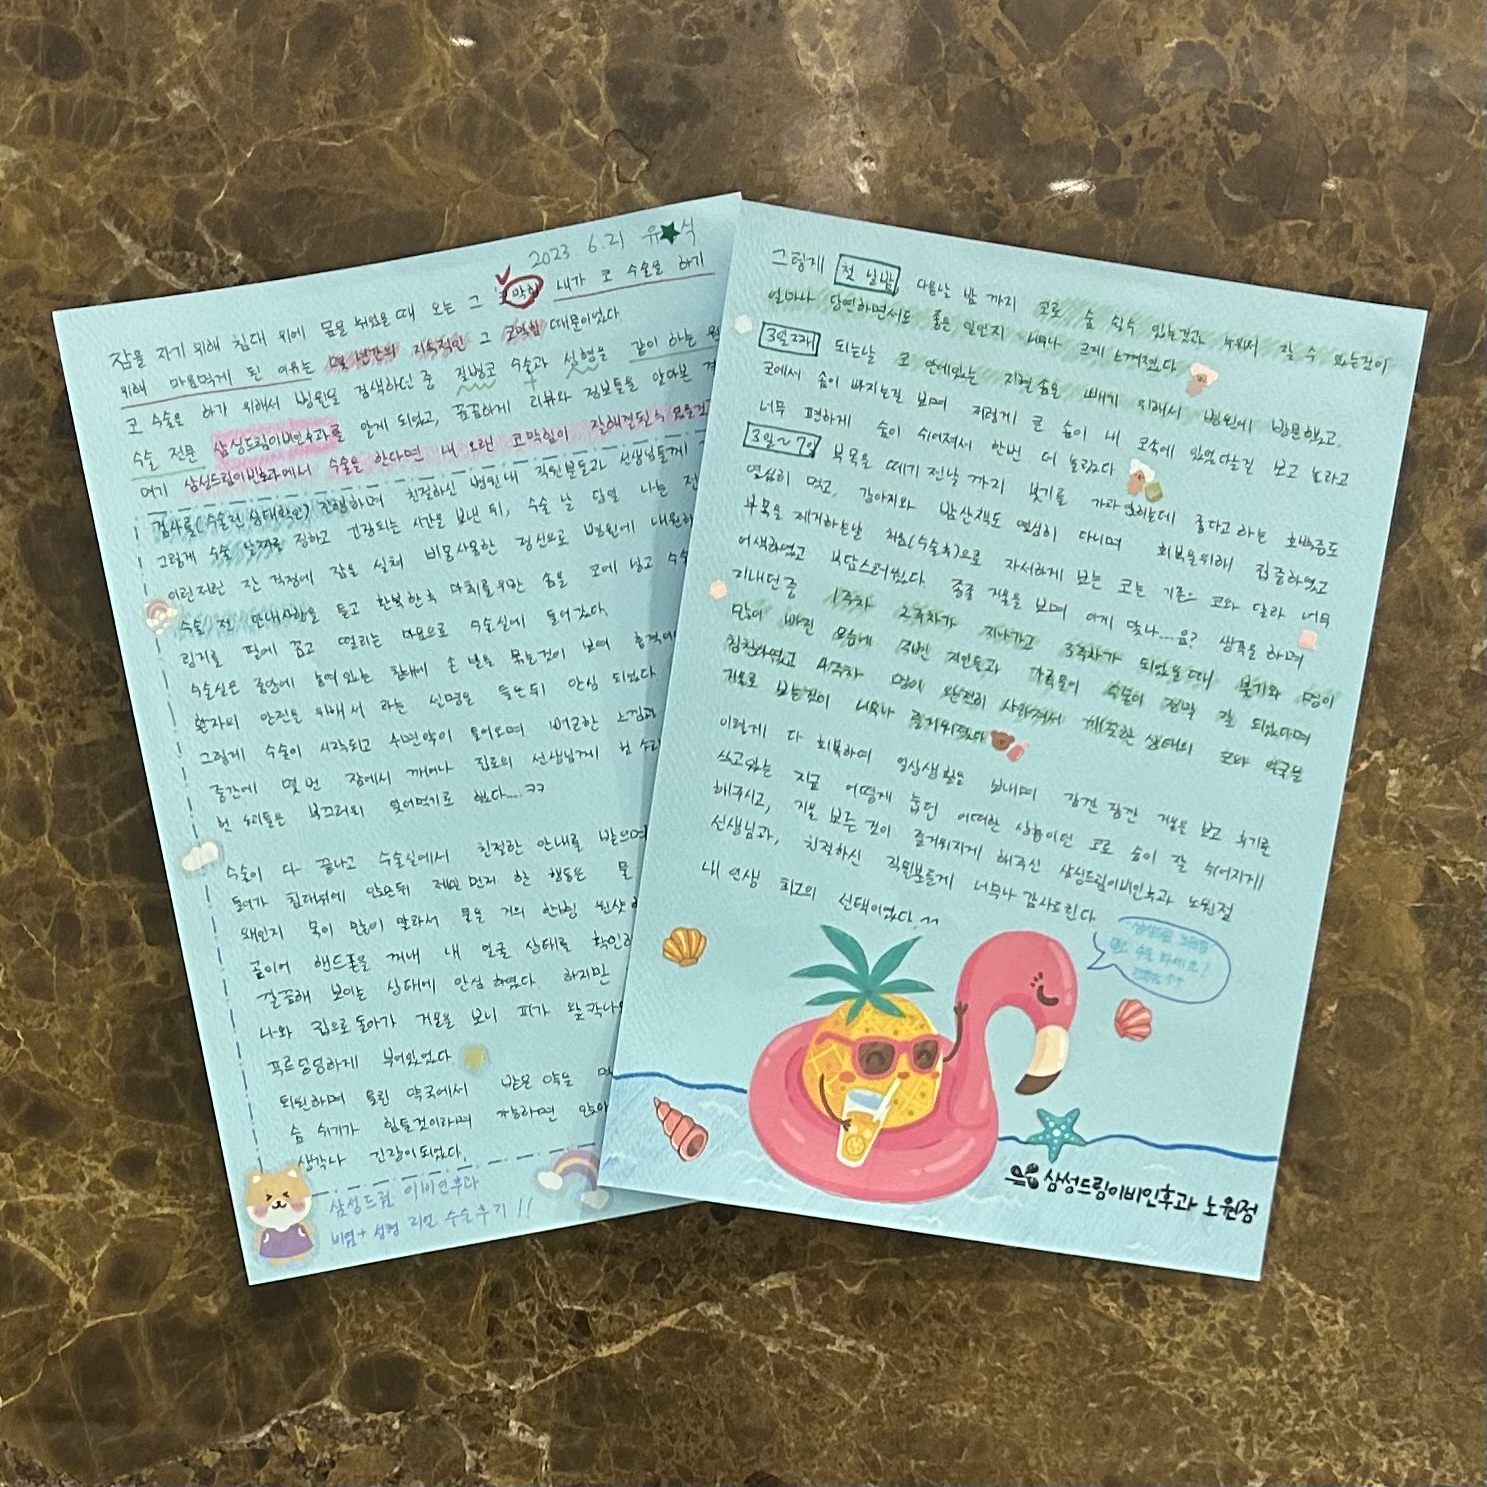 2023 6.21 유★식
잠을 자기 위해 침대 위에 몸을 뉘었을 때 오는 그 코막힘 내가 코 수술을 하기
위해 마음먹게 된 이유는 몇 년간의 지속적인 그 코막힘 때문이었다
코 수술을 하기 위해서 병원을 검색하던 중 질병코 수술과 성형을 같이 하는
수술 전문 삼성드림이비인후과를 알게 되었고, 꼼꼼하게 리뷰와 정보들을 알아본
여기 삼성드림이비인후과에서 수술을 한다면 내 오랜 코막힘이 잘해결될수 있을것
검사를(수술전 상태확인) 진행하며 친절하신 병원내 직원분들과 선생님들께
그렇게 수술 날짜를 정하고 긴장되는 시간을 보낸 뒤, 수술 날 당일 나는
이런저런 잔 걱정에 잠을 설쳐 비몽사몽한 정신으로 병원에 내원하
수술 전 안내사항을 듣고 환복한후 마취를위한 솜을 코에 넣고
링거를 팔에 꼽고 떨리는 마음으로 수술실에 들어갔다
수술실은 중앙에 놓여있는 침대에 손 발을 묶는것이 보여
환자의 안전을 위해서 라는 설명을 들은뒤 안심 되었다
그렇게 수술이 시작되고 수면약이 들어오며 벙벙한 느낌과
중간에 몇 번 잠에서 깨어나 집도의 선생님께 헛 소리
헛 소리들은 부끄러워 잊어먹기로 했다....ㅋㅋ
수술이 다 끝나고 수술실에서 친절한 안내를 받으며
들어가 침대위에 앉은뒤 제일 먼저 한 행동은 물
왜인지 목이 많이 말라서 물을 거의 한병 원샷
곧이어 핸드폰을 꺼내 내 얼굴 상태를 확인하
깔끔해 보이는 상태에 안심 하였다 하지만
나와 집으로 돌아가 거울을 보니 피가
푸르딩딩하게 부어있었다
퇴원하며 들린 약국에서 받은 약을
숨 쉬기가 힘들것이라며 가능하면
생각나 긴장이 되었다.
삼성드림 이비인후과
비염+성형 리얼 수술후기!!
그렇게 첫 날밤 다음날 밤 까지 코로 숨 쉴수 있는것과 누워서 잘 수 있는것이
얼마나 당연하면서도 좋은 일인지 너무나 크게 느껴졌다
3일째 되는날 코 안에있는 지혈솜을 빼기 위해서 병원에 방문했고
코에서 솜이 빠지는걸 보며 저렇게 큰 솜이 내 코속에 있었다는걸 보고 놀라고
너무 편하게 숨이 쉬어져서 한번 더 놀랐다
3일~7일 부목을 떼기 전날 까지 붓기를 가라앉히는데 좋다고 하는 호박즙도
열심히 먹고, 강아지와 밤산책도 열심히 다니며 회복을위해 집중하였고
부목을 제거하는날 처음(수술후)으로 자세하게 보는 코는 기존으 코와 달라 너무
어색하였고 부담스러웠다 종종 거울을 보며 이게 맞나....음? 생각을 하며
지내던 중 1주차 2주차가 지나가고 3주차가 되었을때 붓기와 멍이
많이 빠진 모습에 주변 지인들과 가족들이 수술이 정말 잘 되었다며
칭찬하였고 4주차 멍이 완전히 사라져서 깨끗한 상태의 코와 얼굴을
거울로 보는것이 너무나 즐거워졌다
이렇게 다 회복하며 일상생활을 보내며 잠깐 잠깐 거울을 보고 후기를
쓰고있는 지금 어떻게 눕던 어떠한 상황이던 코로 숨이 잘 쉬어지게
해주시고, 거울 보는 것이 즐거워지게 해주신 삼성드림이비인후과 노원점
선생님과, 친절하신 직원분들께 너무나 감사드린다
내 인생 최고의 선택이었다.^^
삼성드림이비인후과 노원점